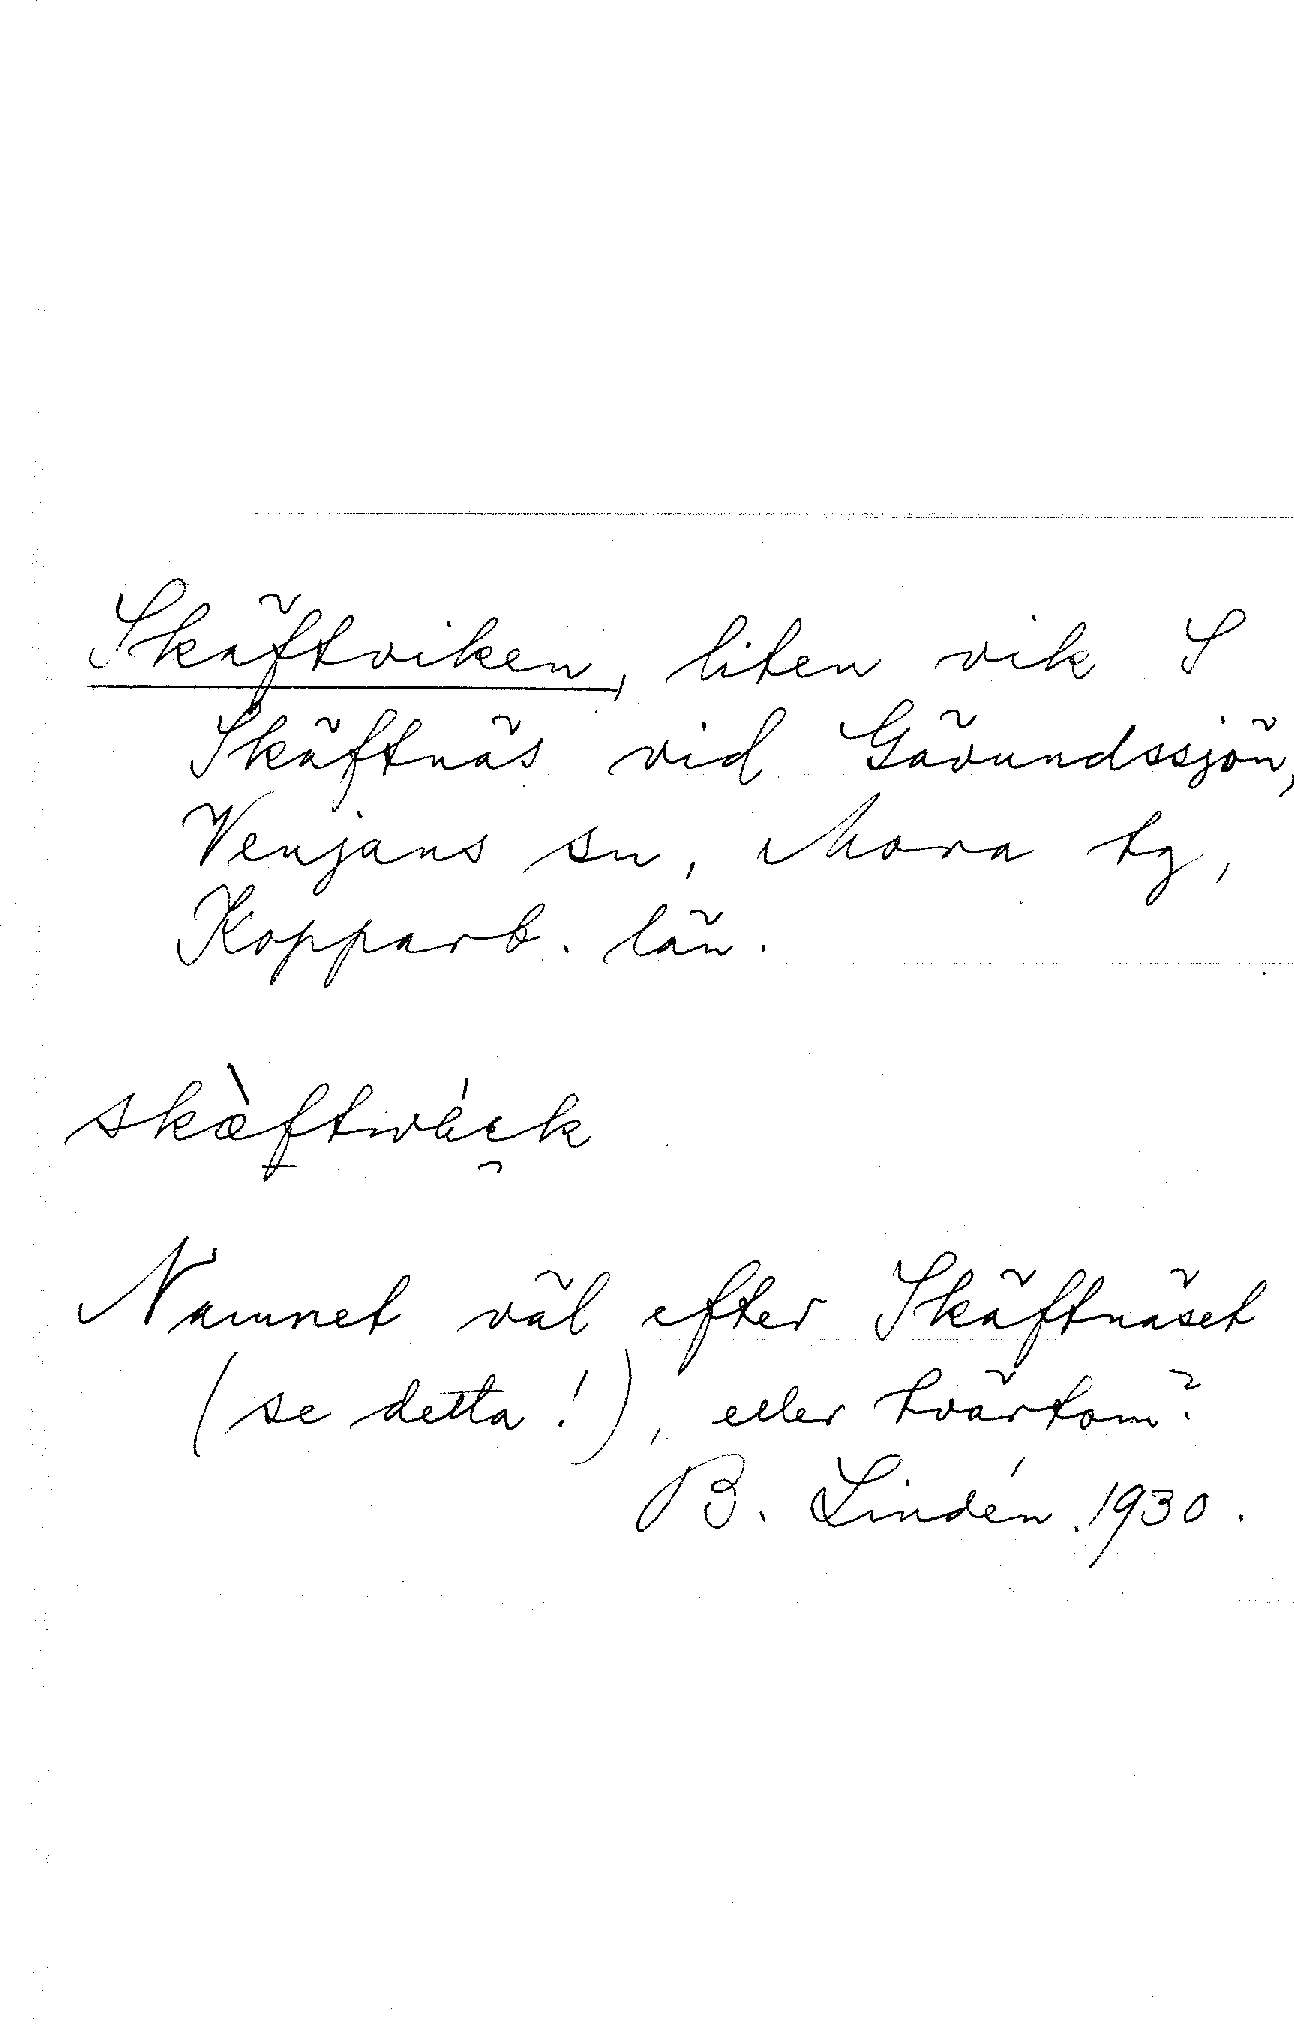 Skäftviken, liten vik S
Skäftnäs vid Gävundssjön,
Venjans sn, Mora tg,
Kopparb. län.
Namnet väl efter Skäftnäset
(se detta!), eller tvärtom?
B. Lindén 1930.